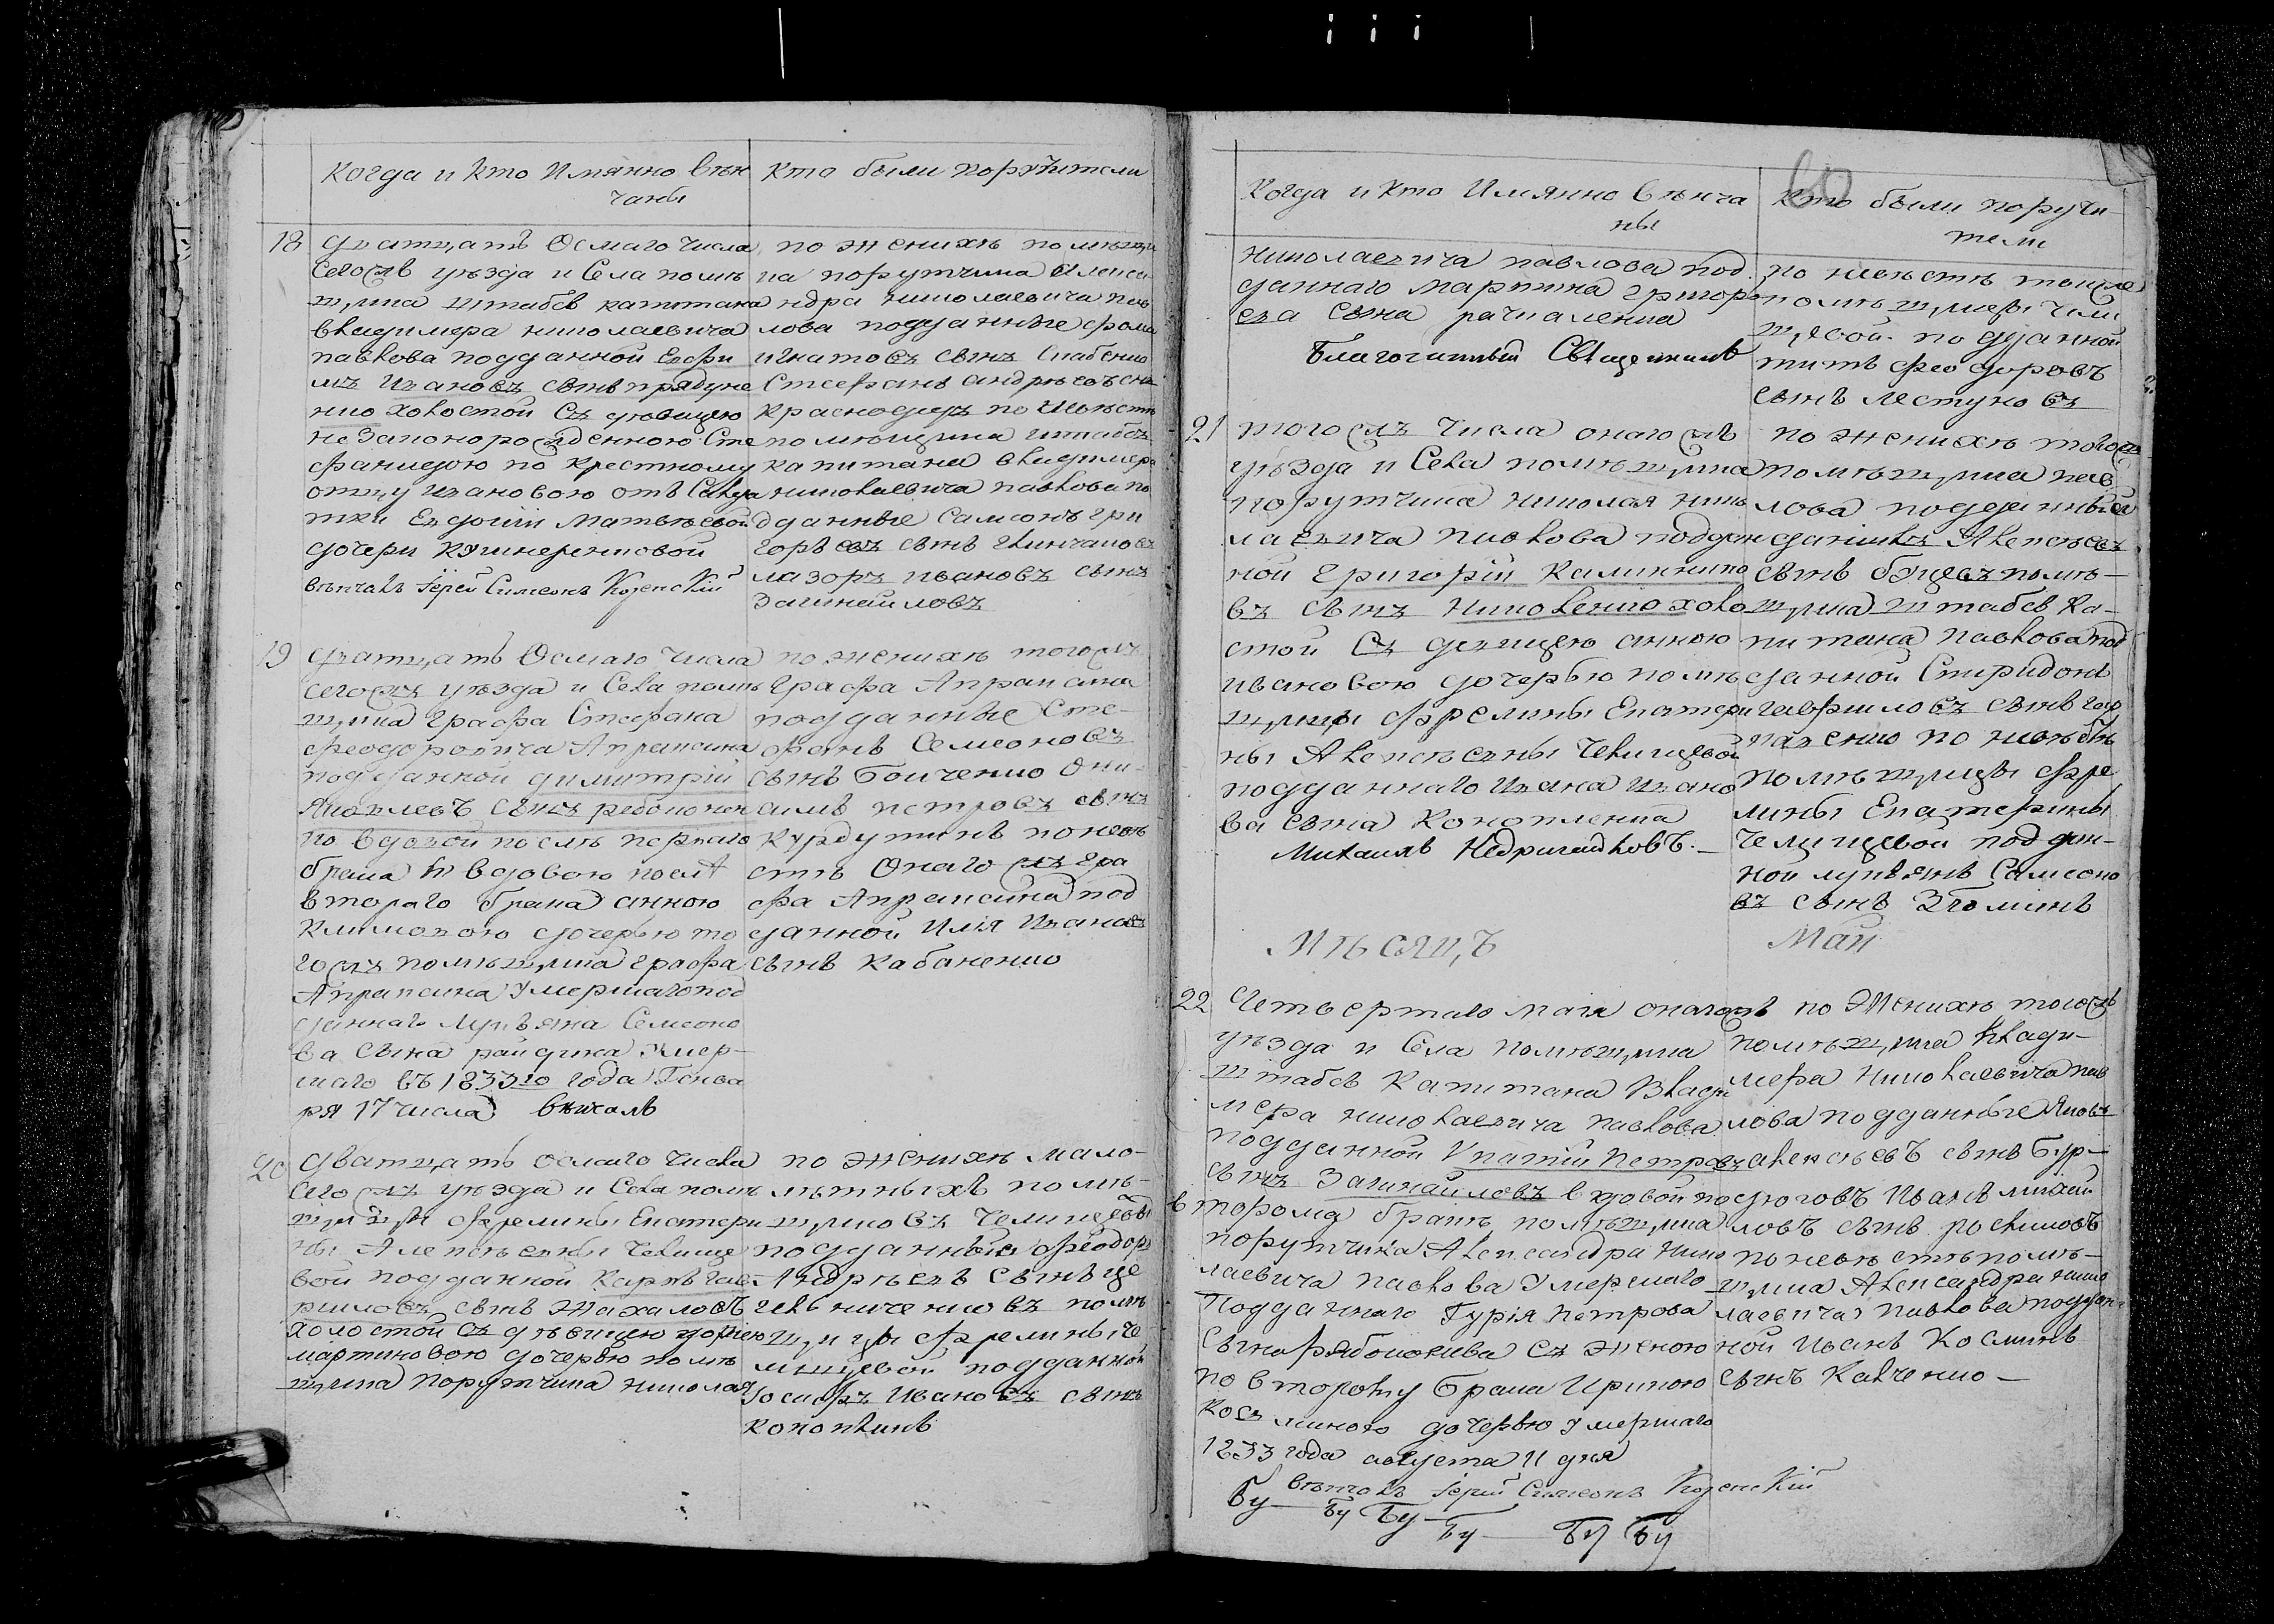 Когда и кто Имянно вѣн
чаны
Кто были поручители
18
дватцать Осмаго числа
сегожъ уѣзда и Села помѣ
щика штабсъ капитана
владимера николаевича
павлова подданной
Ивановъ сынъ
холостой съ дѣвицею
незаконорожденною Сте
фанидою по крестному
отцу Ивановою отъ Солда
тки Евдокіи Матвѣевой
дочери
вѣнчалъ Іерей Симеонъ
по женихѣ помѣщи
ка порутчика Алекса
ндра николаевича пав
лова подданные фома
игнатовъ сынъ
Стефанъ андрѣевъ сы
по невѣстѣ
помѣщика штабсъ
капитана владимера
николаевича павлова по
дданные Самсонъ гри
горьевъ сынъ
лазорь ивановъ сынъ
загинайловъ
19
дватцать Осмаго числа
сегожъ уѣзда и Села помѣ
щика Графа Стефана
феодоровича Апраксина
подданной димитрій
Яковлевъ сынъ рябоконен
ко вдовой послѣ перваго
брака съ вдовою послѣ
втораго брака анною
Климовою дочерью то
гожъ помѣщика графа
Апраксина умершаго под
даннаго лукьяна Семсоно
ва сына умер
шаго въ 1833го года Генва
ря 17 числа вѣнчалъ
по женихѣ тогожъ
Графа Апраксина
подданные Сте-
фанъ Семсоновъ
сынъ Бойченко Они-
симъ петровъ сынъ
по невѣ
стѣ Онагожъ гра
фа Апраксина под
данной Илія Ивановъ
сынъ кабаненко
20
дватцать осмаго числа
сегожъ уѣзда и Села помѣ
щицы фрелины Екатери
ны Алексѣевны Челище
вой подданной Карпъ гав
риловъ сынъ Жахаловъ
холостой съ дѣвицею
мартиновою дочерью помѣ
щика порутчика николая
по женихѣ мало-
лѣтныхъ помѣ-
щиковъ Челищевы
подданный феодоръ
Андрѣевъ сынъ
помѣ
щицы фрелины Че
лищевой подданной
Іосифъ Ивановъ сынъ
коноплинъ
60
Когда и кто Имянно вѣнча
ны
Кто были поручи-
тели
николаевича павлова под
даннаго мартина григорь
ева сына
Благочинный Священникъ
по невѣстѣ тоижъ
помѣщицы чели
щевой подданной
титъ феодоровъ
сынъ лестуновъ
21
тогожъ числа онагожъ
уѣзда и Села помѣщика
порутчика николая нико
лаевича павлова поддан
ной Григорій Калиннико
въ сынъ николенко холо
стой съ дѣвицею анною
ивановою дочерью помѣ
щицы фрелины Екатери
ны Алексѣевны Челищевой
подданнаго Ивана Ивано
ва сына Коноплина
Михаилъ Недригайловъ.
по женихѣ тогожъ
помѣщика пав
лова подданный
даніилъ Алексѣевъ
сынъ бѣцевъ помѣ-
щика штабсъ ка-
питана павлова под
данной Спиридонъ
гавриловъ сынъ
по невѣстѣ
помѣщицы фре
лины Екатерины
Челищевой поддан-
ной лукьянъ Самсоно
въ сынъ
Мѣсяцъ
Май
22
Четвертаго мая онагожъ
уѣзда и Села помѣщика
штабсъ капитана Влади
мера николаевича павлова
подданной Ипатій петровъ
сынъ Загинайловъ вдовой по
второмъ бракѣ помѣщика
порутчика Александра нико
лаевича павлова Умершаго
подданнаго Гурія петрова
сына рябоконева съ женою
по второму браку Ириною
Косминою дочерью умершаго
1833 года августа 11 дня
вѣнчалъ Іерей Симеонъ
по женихѣ тогожъ
помѣщика влади-
мера николаевича пав
лова подданные Яковъ
алексѣевъ сынъ Бур-
дюговъ Иванъ михай
ловъ сынъ
по невѣстѣ помѣ-
щика Александра нико
лаевича павлова поддан
ной Иванъ Косминъ
сынъ Кавченко
Бу Бу Бу Бу Бу Бу